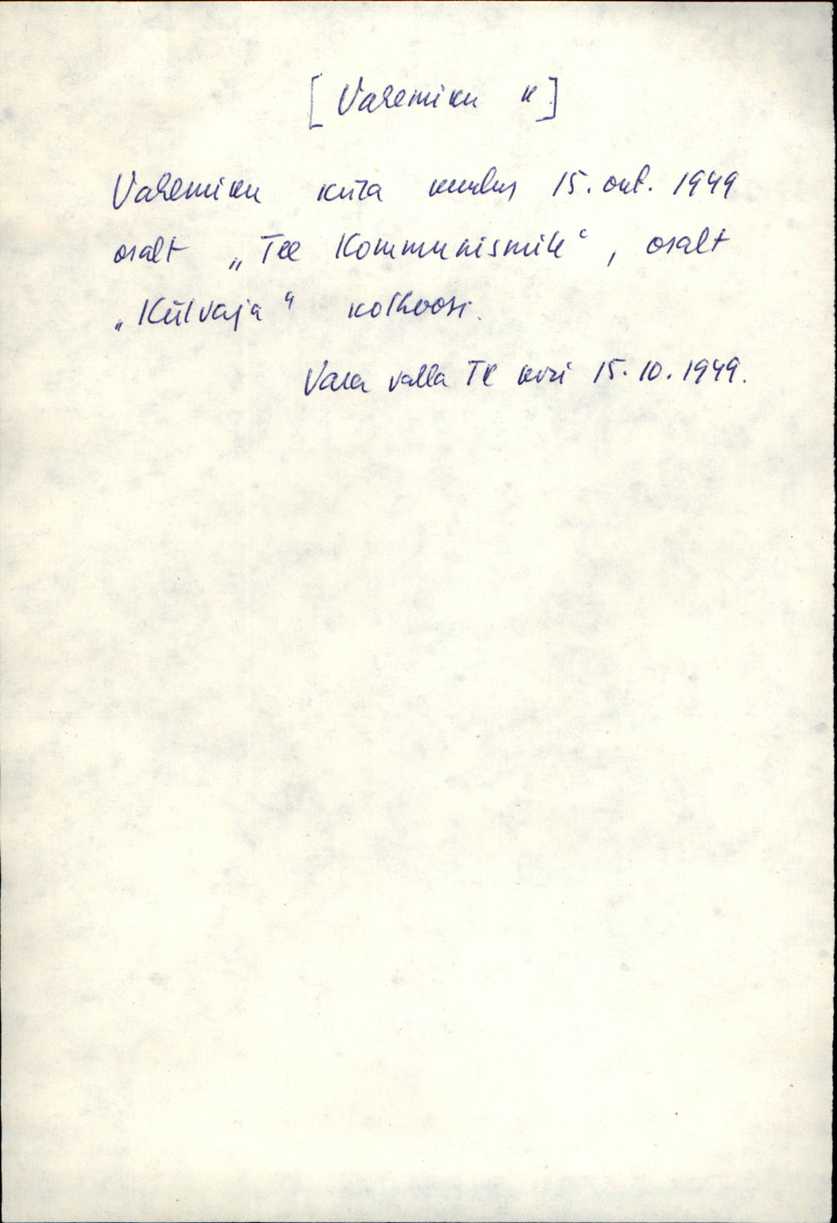 [Vahemiku k]
Vahemiku küla kuulus 15. okt. 1949
osalt „Tee Kommunismile“, osalt
„Külvaja“ kolhoosi.
Vara valla TK 15.10.1949.